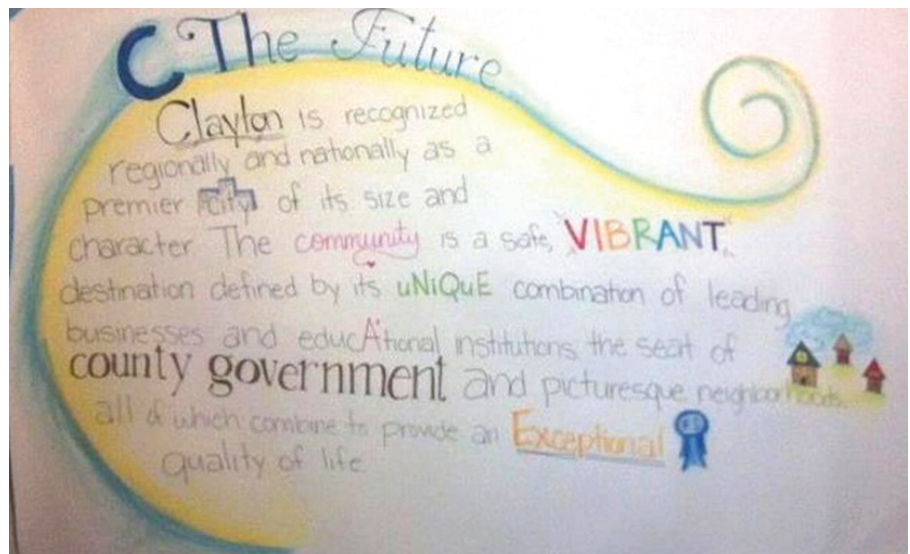 C The Future
Clayton is recognized
regionally and nationally as a
premier city of its size and
character The community is a safe, "VIBRANT"
destination defined by its uNiQuE combination of leading
businesses and educAtional institutions the seat of
county government and picturesque neighborhoods.
all of which combine to provide an Exceptional
quality of life